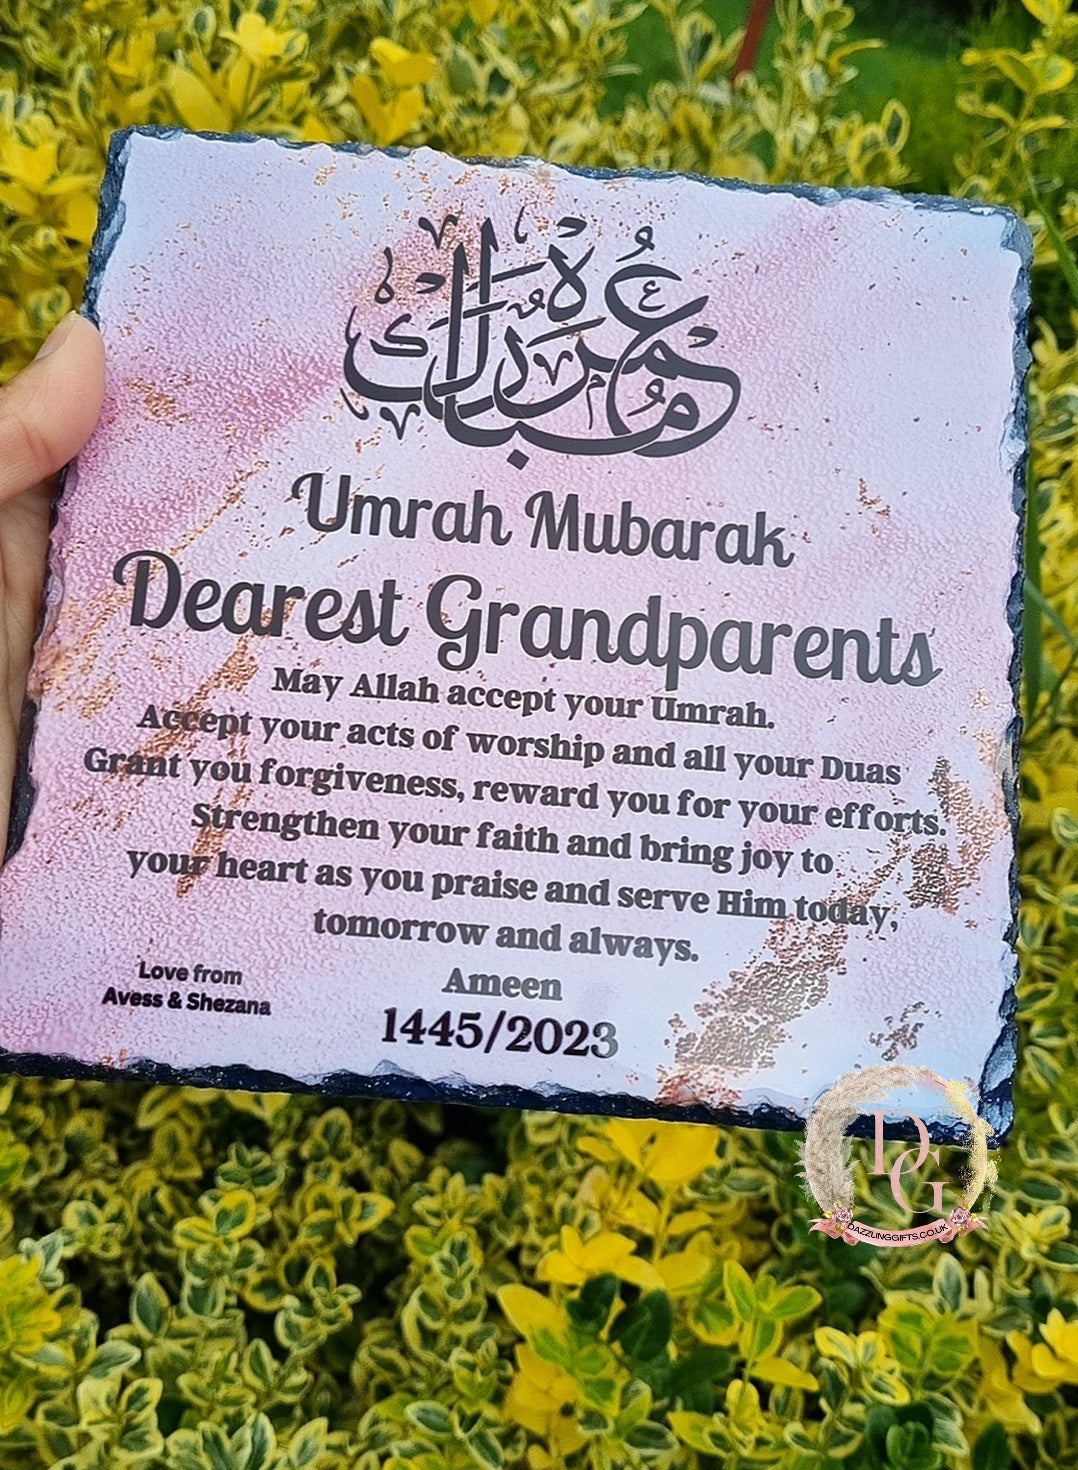 عُمْرَةٌ مُبَارَكَةٌ
Umrah Mubarak
Dearest Grandparents
May Allah accept your Umrah.
Accept your acts of worship and all your Duas
Grant you forgiveness, reward you for your efforts.
Strengthen your faith and bring joy to
your heart as you praise and serve Him today,
tomorrow and always.
Ameen
Love from
Avess & Shezana
1445/2023
DG
DAZZLINGGIFTS.CO.UK